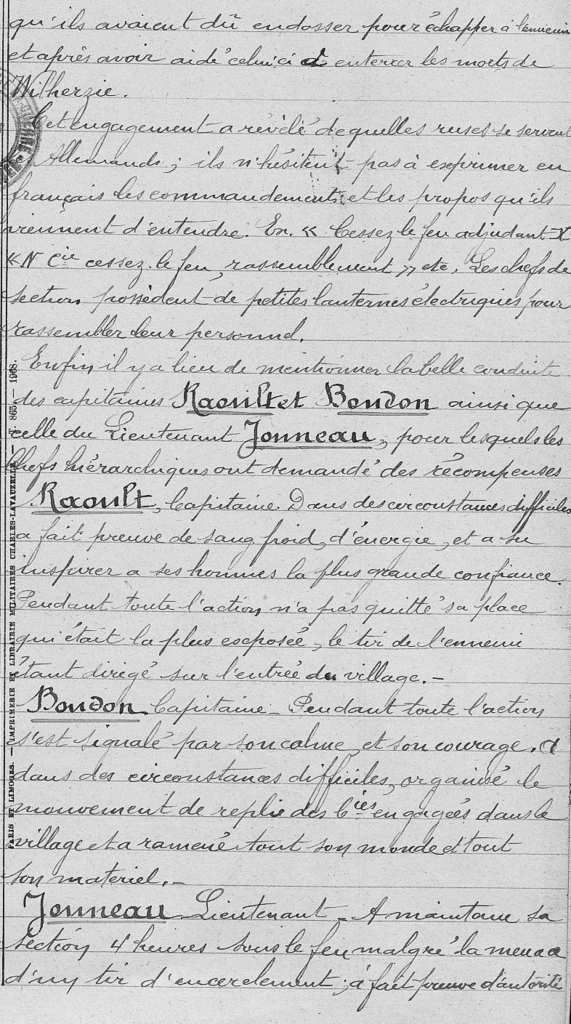 qu'ils avaient dû endosser pour échapper à l'ennemi
et après avoir aidé celui-ci à enterrer les morts de
Witherzie.
Cet engagement a révélé de quelles ruses se servent
Allemands; ils n'hésitent pas à exprimer en
français les commandements et les propos qu'ils
viennent d'entendre. Ex. « Cessez le feu adjudant X
« N Cie cessez le feu, rassemblement » etc. Les chefs de
section possèdent de petites lanternes électriques pour
rassembler leur personnel.
Enfin il y a lieu de mentionner la belle conduite
des capitaines Raoult et Boudon ainsi que
celle du Lieutenant Jonneau, pour lesquels les
chefs hiérarchiques ont demandé des récompenses
Raoult, Capitaine. Dans des circonstances difficiles
a fait preuve de sang froid, d'énergie, et a su
inspirer a ses hommes la plus grande confiance.
Pendant toute l'action n'a pas quitté sa place
qui était la plus exposée, le tir de l'ennemi
étant dirigé sur l'entrée du village.-
Boudon Capitaine - Pendant toute l'action
s'est signalé par son calme et son courage. A
dans des circonstances difficiles, organisé le
mouvement de repli des Cies engagées dans le
village et a ramené tout son monde et tout
son matériel.-
Jonneau Lieutenant - A maintenu sa
section 4 heures sous le feu malgré la menace
d'un tir d'encerclement; à fait preuve d'autorité
PARIS ET LIMOGES. — IMPRIMERIE ET LIBRAIRIE MILITAIRES CHARLES-LAVAUZELLE